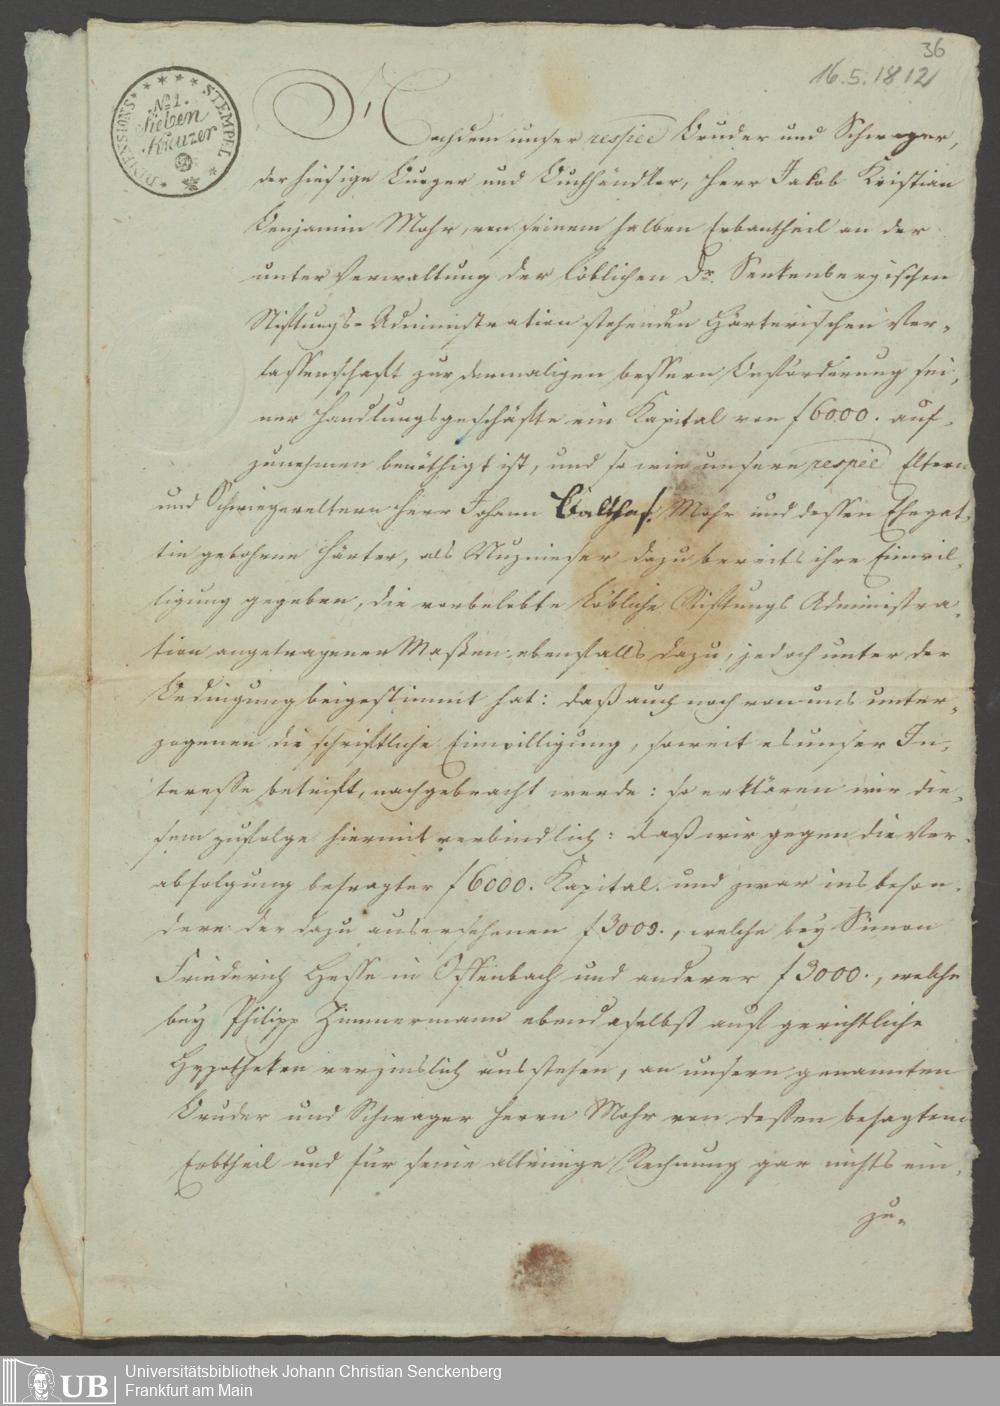 36
16.5.1812
DIMENSIONS STEMPEL
No. 1.
Sieben
Kreuzer
Nachdem unser respec Bruder und Schwager,
der hiesige Burger und Buchhändler, Herr Jakob Kristian
Benjamin Mohr, von seinem halben Erbantheil an der
unter Verwaltung der löblichen Dr. Senkenbergischen
Stiftungs-Administration stehenden Härterischen Ver-
lassenschaft zur dermaligen bessern Beförderung sei-
ner Handlungsgeschäfte ein Kapital von f 6000. auf-
zunehmen benöthigt ist, und so wie unsere respec Eltern
und Schwiegereltern Herr Johann Balthas. Mohr und dessen Ehegat-
tin gebohrne Härter, als Nuznieser dazu bereits ihre Einwil-
ligung gegeben, die vorbelobte Löbliche Stiftungs Administra-
tion angetragener Maßen ebenfalls dazu, jedoch unter der
Bedingung beigestimmt hat: daß auch noch von uns unter-
zogenen die schriftliche Einwilligung, soweit es unser In-
teresse betrift, nachgebracht werde: so erklären wir die-
sem zufolge hiermit verbindlich: daß wir gegen die Ver-
abfolgung besagter f 6000. Kapital. und zwar ins beson-
dere der dazu ausersehenen f 3000., welche bey Simon
Friederich Hesse in Offenbach und anderer f 3000., welche
bey Philipp Zimmermann ebendaselbst auf gerichtliche
Hypotheken verzinslich ausstehen, an unsern genannten
Bruder und Schwager Herrn Mohr von dessen besagtem
Erbtheil und für seine alleinige Rechnung gar nichts ein-
zu-
UB
Universitätsbibliothek Johann Christian Senckenberg
Frankfurt am Main